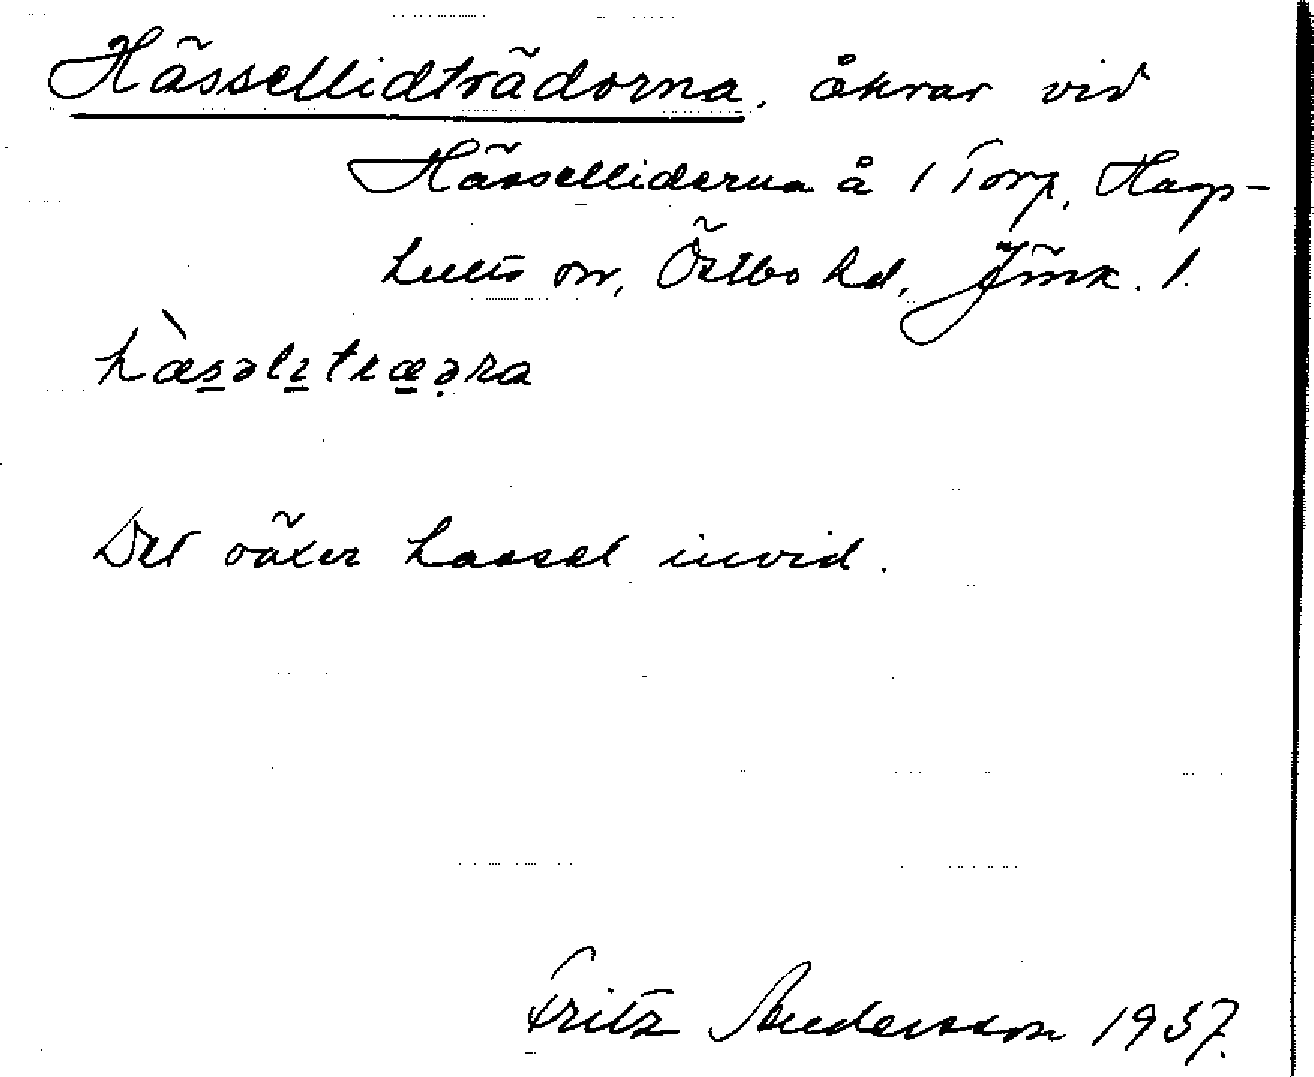 Hässellidträdorna, åkrar vid
Hässelliderna å 1 Torp, Hags-
hults sn, Östbo hd, Jönk. l.
hàsəlɪtræəra
Det växer hassel invid.
Fritz Andersson 1937.